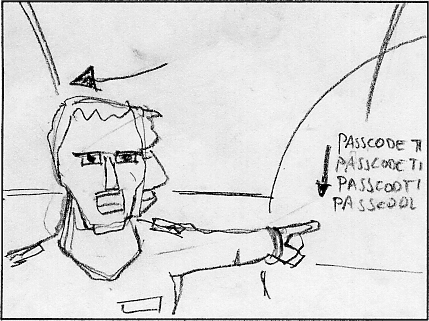 PASSCODE TI
PASSCODE TI
PASSCODTI
PASSCODL